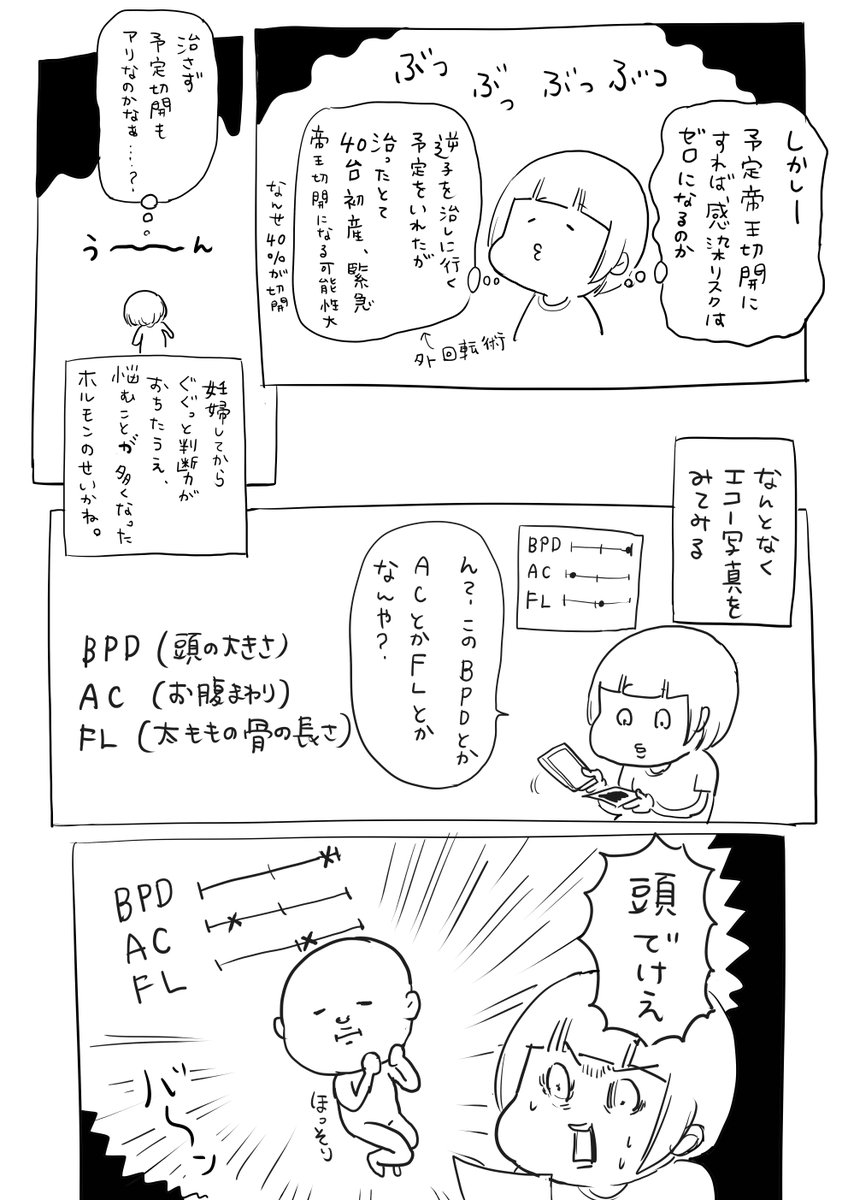 しかしー
予定帝王切開に
すれば、感染リスクは
ゼロになるのか
ぶっ
ぶっ
ぶっ
ぶっ
逆子を治しに行く
予定をいれたが
治ったとて
40台初産、緊急
帝王切開になる可能性大
なんせ40%が切開
←外回転術
治さず
予定切開も
アリなのかなぁ…?
う〜ん
妊婦してから
ぐぐっと判断力が
おちたうえ、
悩むことが多くなった
ホルモンのせいかね。
なんとなく
エコー写真を
みてみる
BPD
AC
FL
ん?、このBPDとか
ACとかFLとか
なんや?
BPD(頭の大きさ)
AC(お腹まわり)
FL(太ももの骨の長さ)
頭でけえ
BPD
AC
FL
バーン
ほっそり